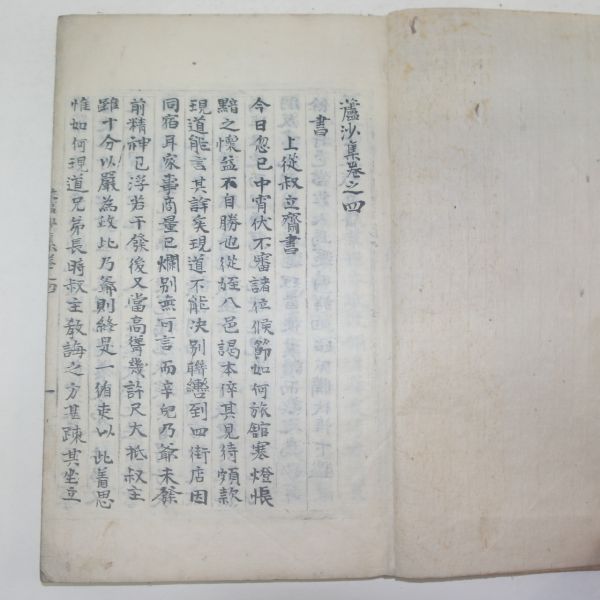 蘆沙集卷之四
書
上從叔立齋書
今日忽已中宵伏不審諸位候節如何旅舘寒燈悵
黯之懷益不自勝也從姪八邑謁本倅其見待頗款
現道能言其詳矣現道不能决別聯轡到四街店因
同宿耳家事商量已爛別無可言而辛兒乃爺未發
前精神已浮若干發後又當高幾許尺大抵叔主
雖十分以嚴為政此乃爺則終是一循吏以此善思
惟如何現道兄弟長時叔主敎誨之方甚疎其坐立